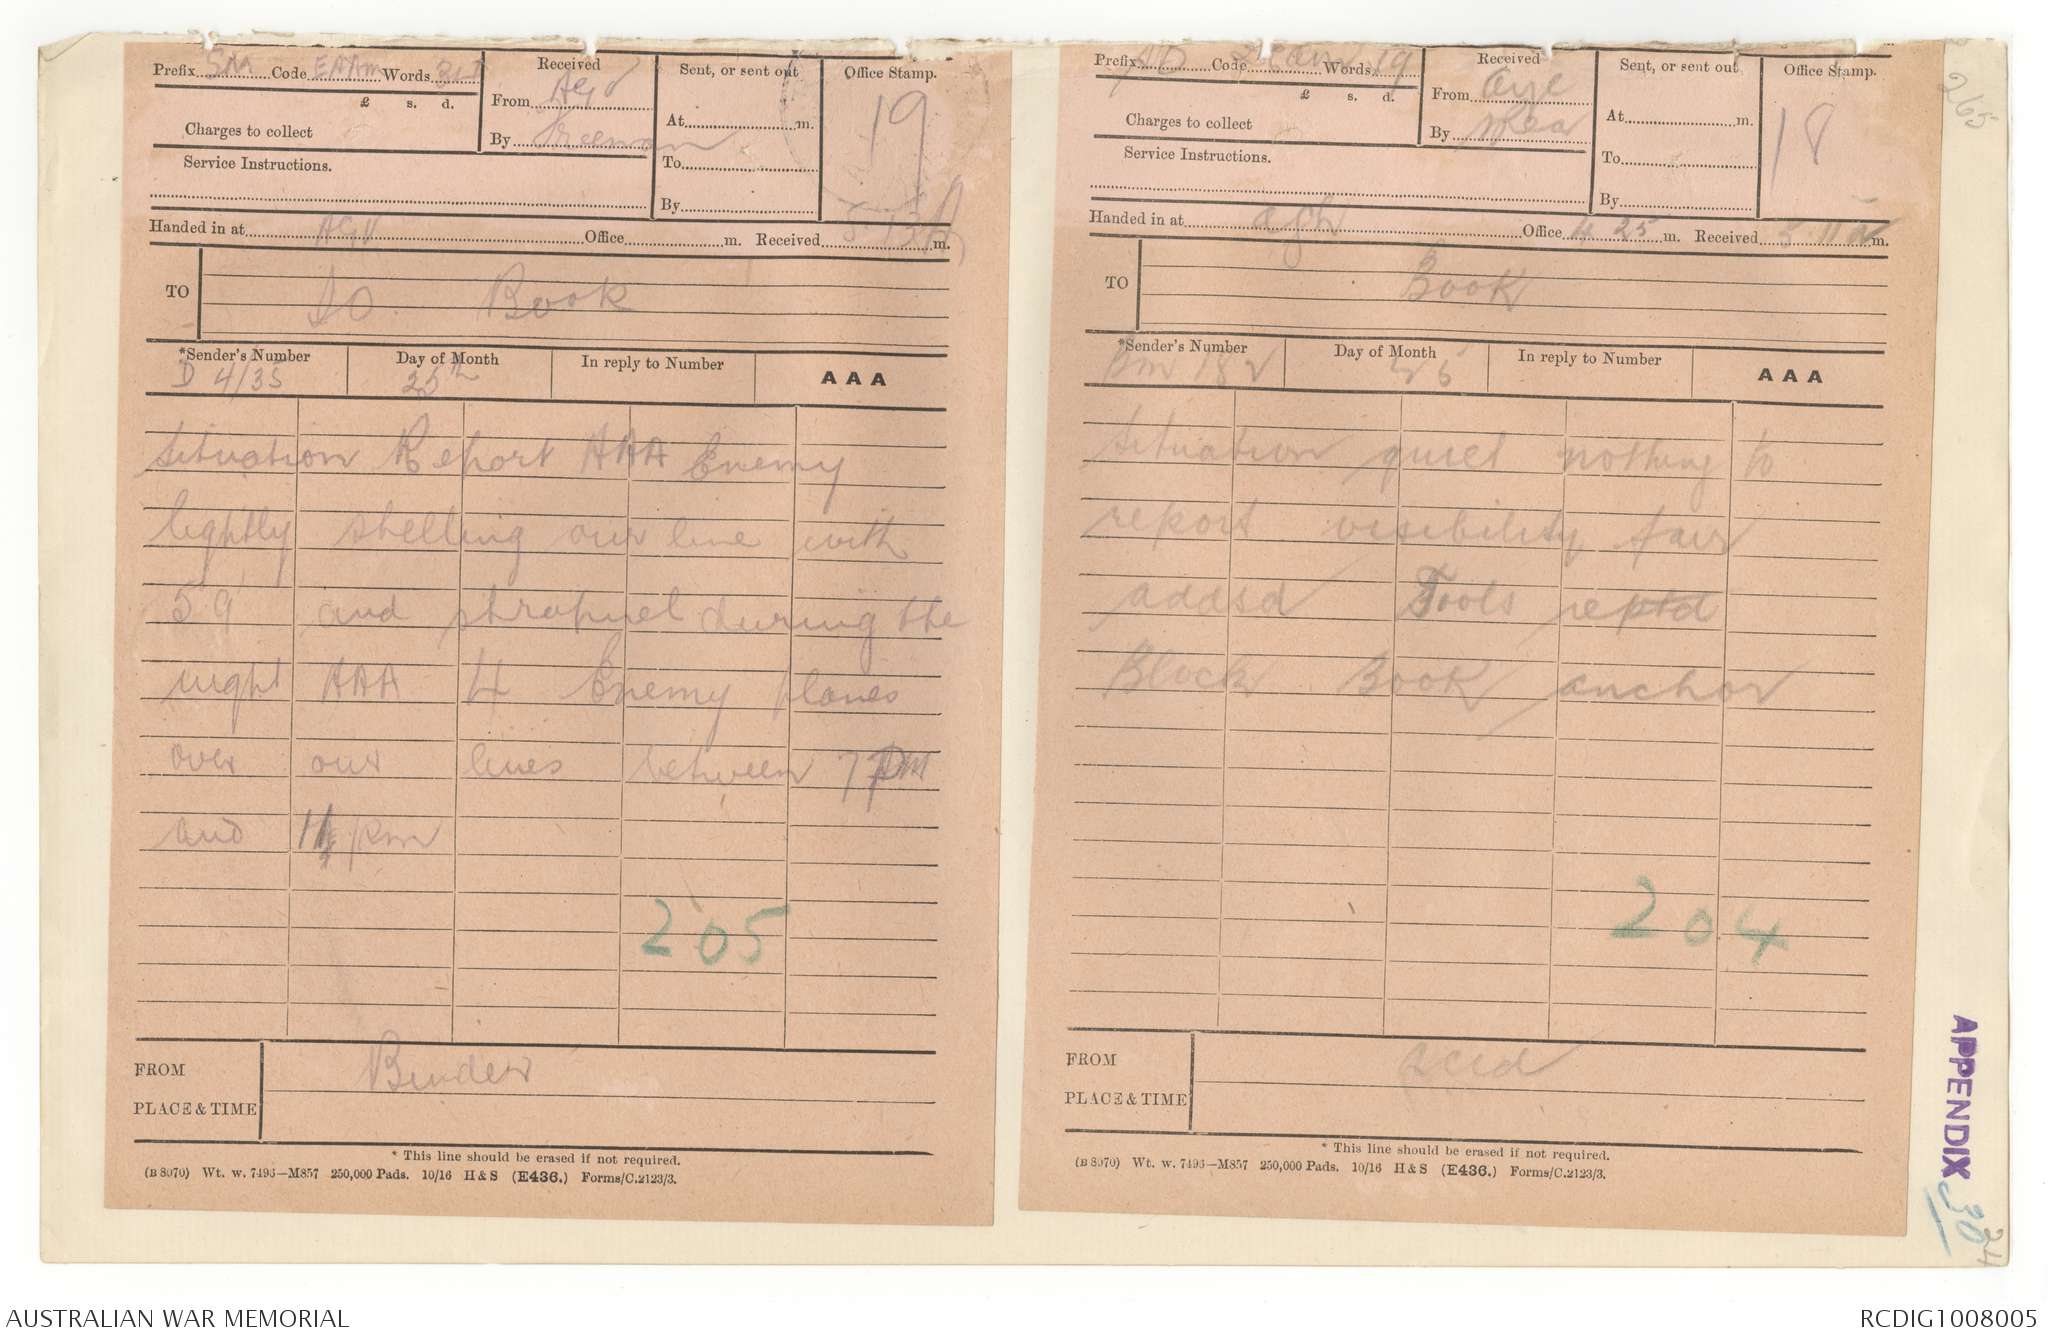 Prefix SM Code EAAM Words
Received
From AGV
By Freeman
Sent, or sent out
At m.
To
By
Office Stamp.
19
£ s. d.
Charges to collect
Service Instructions.
Handed in at AGV Office m. Received 5-13A m.
TO
Book
*Sender's Number
D 4/35
Day of Month
25th
In reply to Number
AAA
Situation Report AAA Enemy
lightly shelling our line with
59 and shrapnel during the
night AAA 4 Enemy planes
over our lines between 7 PM
and pm
205
FROM
PLACE & TIME
Binder
* This line should be erased if not required.
(B 8070) Wt. w. 7496—M857 250,000 Pads. 10/16 H & S (E436.) Forms/C.2123/3.
Prefix Code Words 19
Received
From
By
Sent, or sent out
At m.
To
By
Office Stamp.
18
£ s. d.
Charges to collect
Service Instructions.
Handed in at Office 4 25 m. Received 5 11 a m.
TO
Book
*Sender's Number
Bm 182
Day of Month
In reply to Number
AAA
Situation quiet nothing to
report visibility fair
addsd Tools reptd
Block Book anchor
204
FROM
PLACE & TIME
acid
* This line should be erased if not required.
(B 8070) Wt. w. 7496—M857 250,000 Pads. 10/16 H & S (E436.) Forms/C.2123/3.
265
APPENDIX 30
24
AUSTRALIAN WAR MEMORIAL
RCDIG1008005